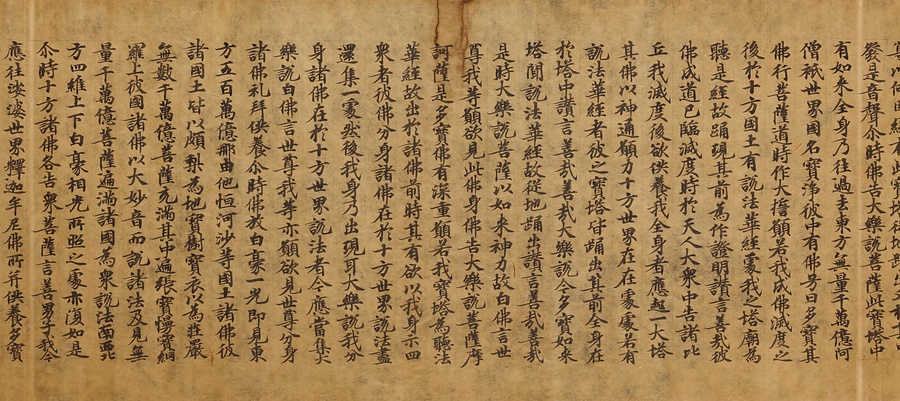 發是音聲尒時佛告大樂說菩薩此寶塔中
有如來全身乃往過去東方無量千萬億阿
僧祇世界國名寶淨彼中有佛号曰多寶其
佛行菩薩道時作大擔願若我成佛滅度之
後於十方國土有說法華經處我之塔廟為
聽是經故踊現其前為作證明讚言善哉彼
佛成道已臨滅度時於天人大衆中告諸比
丘我滅度後欲供養我全身者應起一大塔
其佛以神通願力十方世界在在處處若有
說法華經者彼之寶塔皆踊出其前全身在
於塔中讚言善哉善哉大樂說今多寶如來
塔聞說法華經故從地踊出讚言善哉善哉
是時大樂說菩薩以如來神力故白佛言世
尊我等願欲見此佛身佛告大樂說菩薩摩
訶薩是多寶佛有深重願若我寶塔為聽法
華經故出於諸佛前時其有欲以我身示四
衆者彼佛分身諸佛在於十方世界說法盡
還集一處然後我身乃出現耳大樂說我分
身諸佛在於十方世界說法者今應當集大
樂說白佛言世尊我等亦願欲見世尊分身
諸佛礼拜供養尒時佛放白豪一光即見東
方五百萬億那由他恒河沙等國土諸佛彼
諸國土皆以頗梨為地寶樹寶衣以為莊嚴
無數千萬億菩薩充滿其中遍張寶幔寶網
羅上彼國諸佛以大妙音而說諸法及見無
量千萬億菩薩遍滿諸國為衆說法南西北
方四維上下白豪相光所照之處亦復如是
尒時十方諸佛各告衆菩薩言善男子我今
應往娑婆世界釋迦牟尼佛所并供養多寶